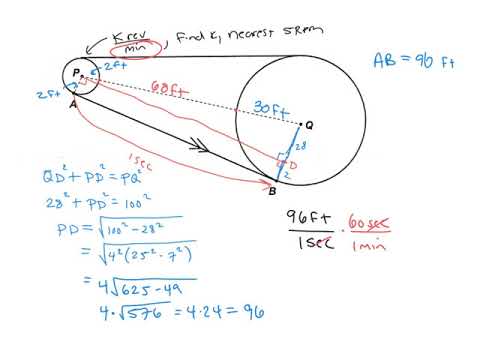 K rev
min , Find K, nearest 5 RPM
AB = 96 ft
P
2ft
2ft
A
68ft
30ft
Q
28
D
2
B
1sec
QD² + PD² = PQ²
28² + PD² = 100²
PD = √100² - 28²
= √4²(25² - 7²)
= 4√625 - 49
4 · √576 = 4 · 24 = 96
96ft
1sec
· 60sec
1min